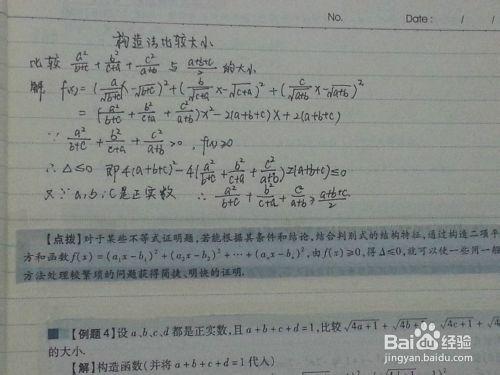 No.
Date: / /
构造法比较大小
比较 a²/(b+c) + b²/(c+a) + c²/(a+b) 与 (a+b+c)/2 的大小
解 f(x)=(a/√(b+c) x-√(b+c))²+(b/√(c+a) x-√(c+a))²+(c/√(a+b) x-√(a+b))²
=[a²/(b+c) + b²/(c+a) + c²/(a+b)]x²-2(a+b+c)x+2(a+b+c)
∵ a²/(b+c) + b²/(c+a) + c²/(a+b) >0, f(x)≥0
∴ Δ≤0 即4(a+b+c)²-4(a²/(b+c) + b²/(c+a) + c²/(a+b))2(a+b+c)≤0
又∵ a,b,c是正实数 ∴ a²/(b+c) + b²/(c+a) + c²/(a+b) ≥ (a+b+c)/2
【点拨】对于某些不等式证明题,若能根据其条件和结论,结合判别式的结构特征,通过构造二项平
方和函数f(x)=(a₁x-b₁)²+(a₂x-b₂)²+…+(aₙx-bₙ)²,由f(x)≥0,得Δ≤0,就可以使一些用一般
方法处理较繁琐的问题获得简捷、明快的证明.
【例题4】设a、b、c、d都是正实数,且a+b+c+d=1,比较√(4a+1)+√(4b+1)+√(4c+1)+√4
的大小.
【解】构造函数(并将a+b+c+d=1代入)
Baidu经验
jingyan.baidu.com